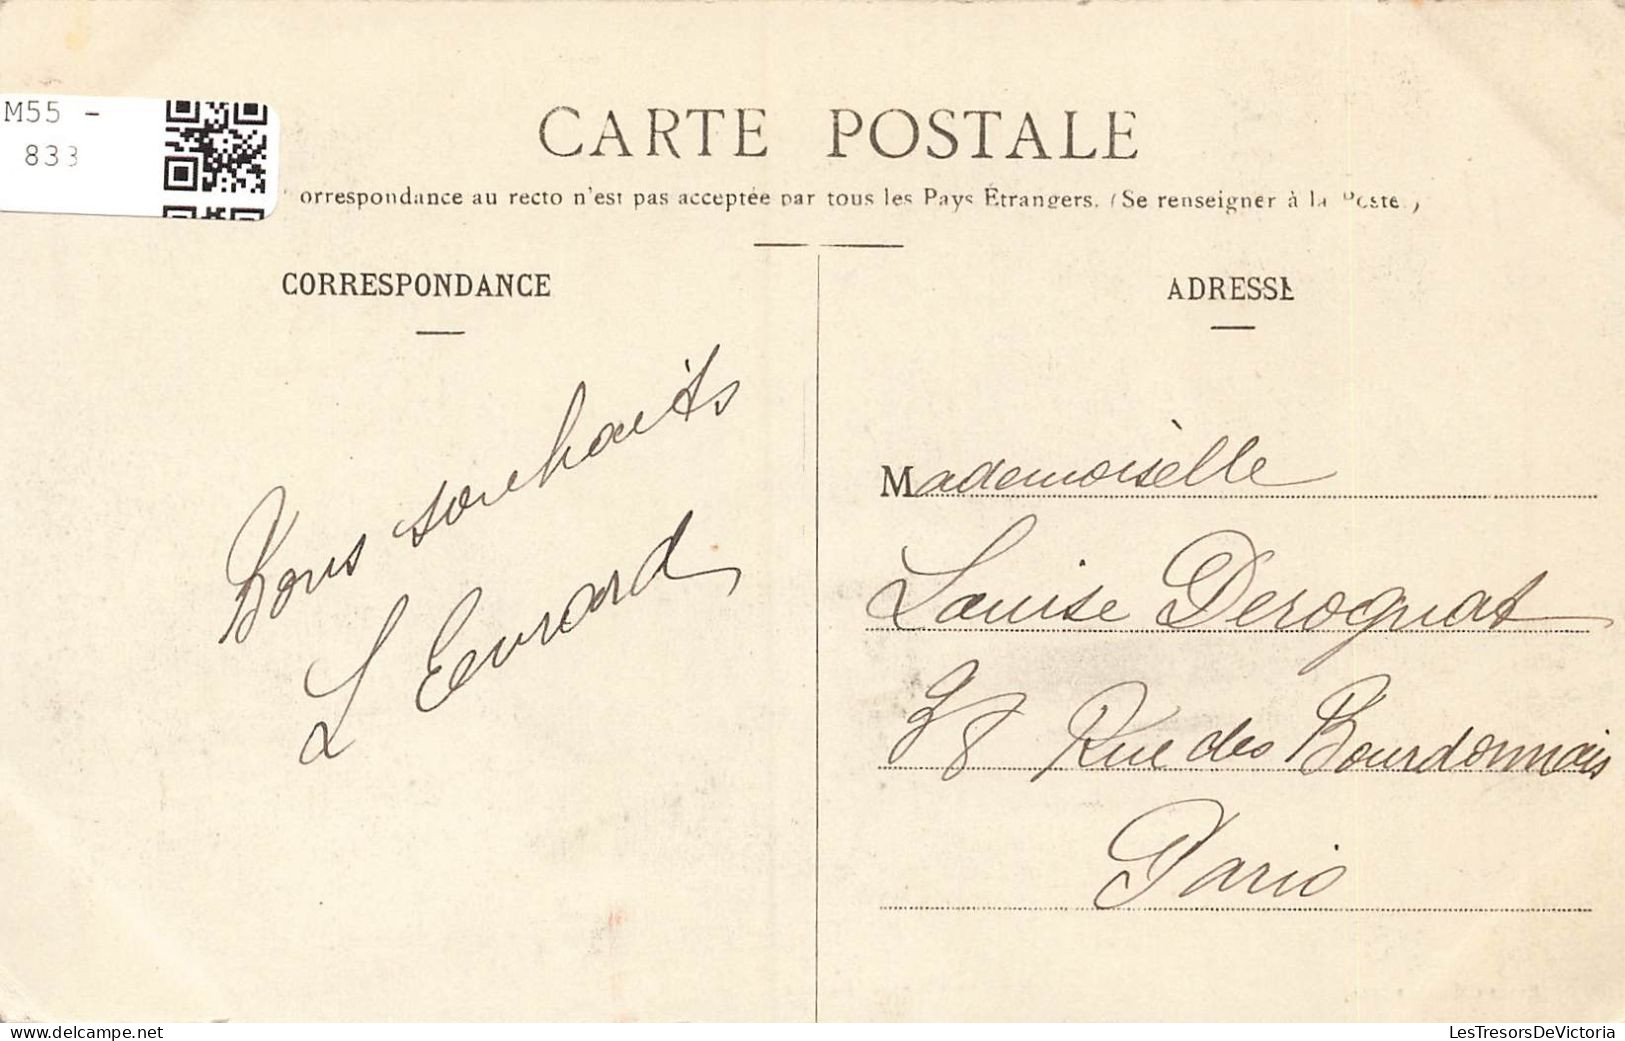 M55 -
833
CARTE POSTALE
orrespondance au recto n'est pas acceptée par tous les Pays Étrangers. (Se renseigner à la Poste.)
CORRESPONDANCE
Bons souhaits
L Evrard
ADRESSE
Mademoisèlle
Louise Derognat
38 Rue des Bourdonnais
Paris
www.delcampe.net
LesTresorsDeVictoria